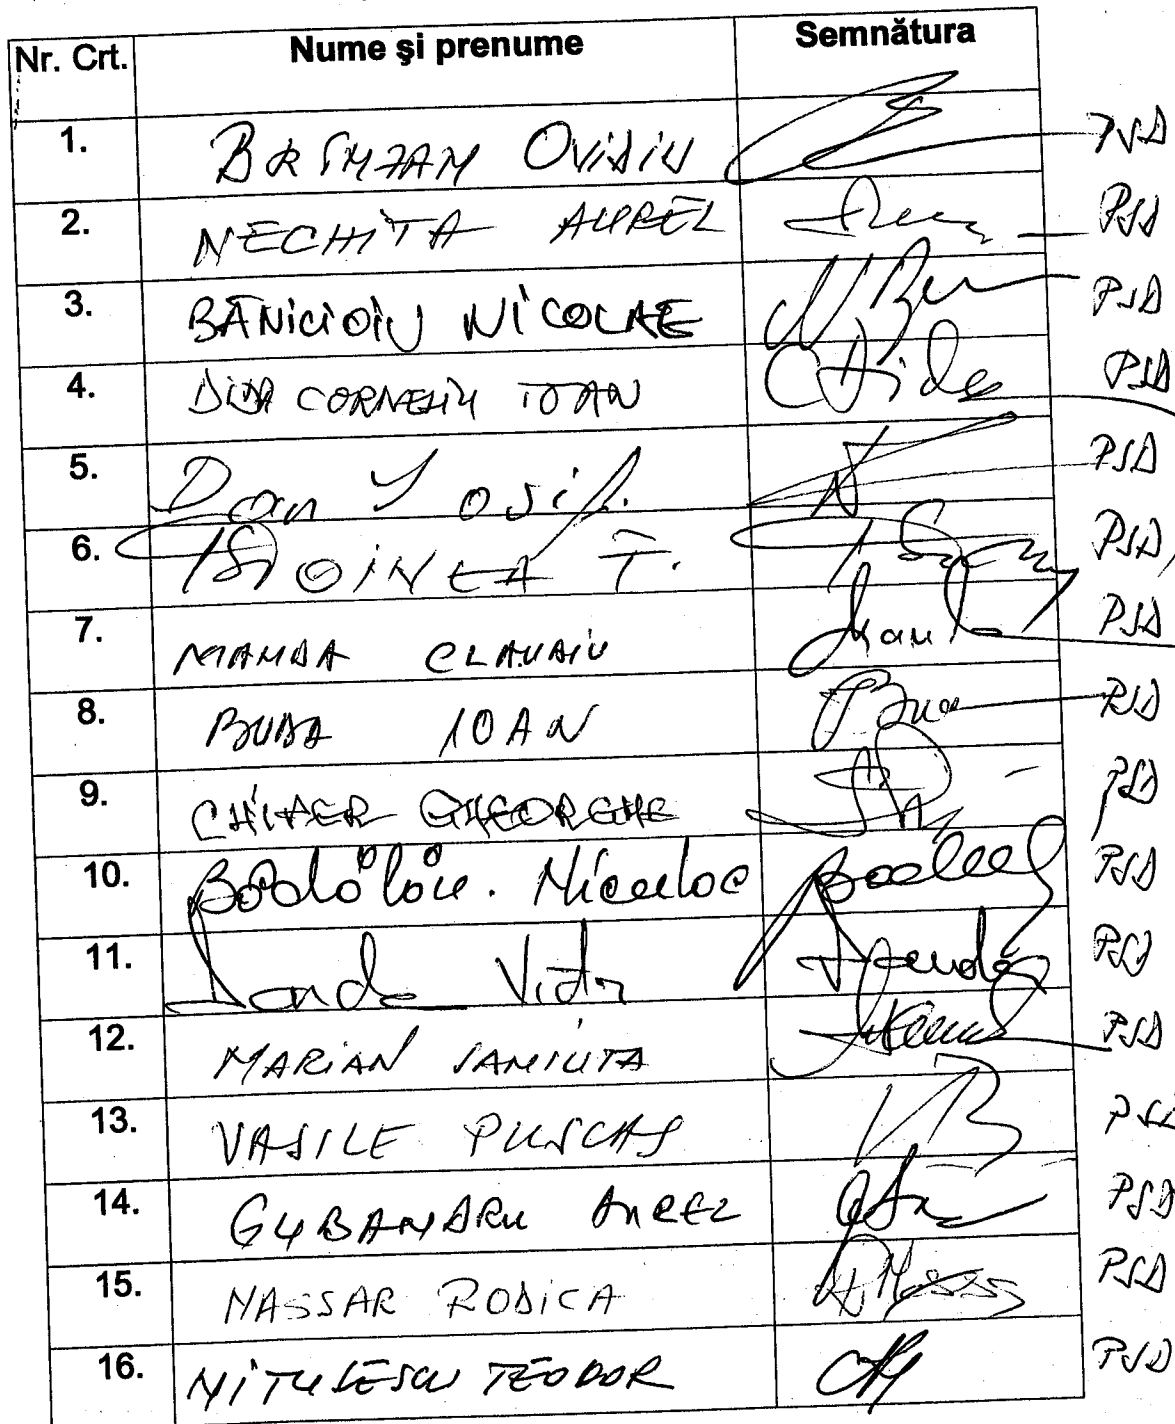 Nr. Crt. Nume și prenume Semnătura
1. BRÎNZAN OVIDIU PSD
2. NECHITA AUREL PSD
3. BĂNICIOIU NICOLAE PSD
4. DIDA CORNELIU IOAN PSD
5. Dan Iosif. PSD
6. STOINEA T. PSD
7. MANDA CLAUDIU PSD
8. BUDA IOAN PSD
9. CHIPER GHEORGHE PSD
10. Bădălău Niculae PSD
11. Sanda Victor PSD
12. MARIAN SANIUTA PSD
13. VASILE PUSCAS PSD
14. GUBANDRU AUREL PSD
15. NASSAR RODICA PSD
16. NITULESCU TEODOR PSD